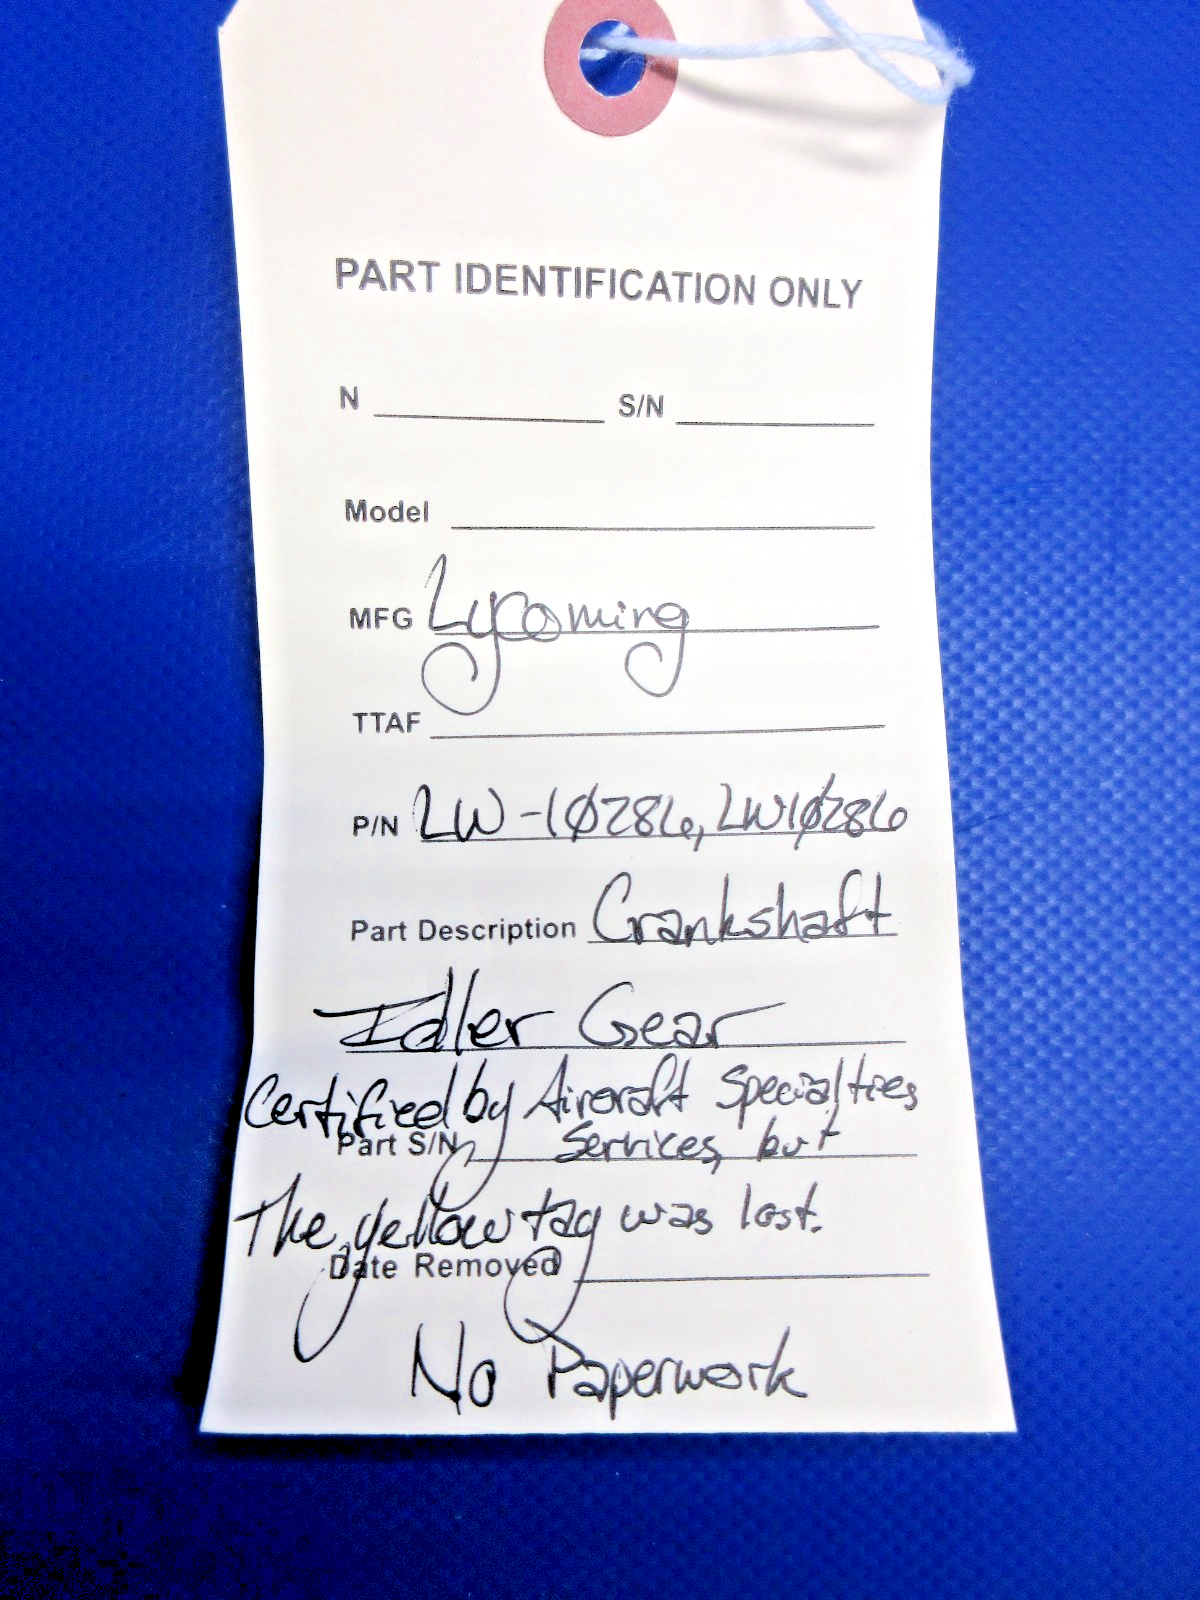 PART IDENTIFICATION ONLY
N S/N
Model
MFG Lycoming
TTAF
P/N LW-10286, LW10286
Part Description Crankshaft
Idler Gear
Certified by Aircraft Specialties
Part S/N Services, but
The yellow tag was lost.
Date Removed
No Paperwork